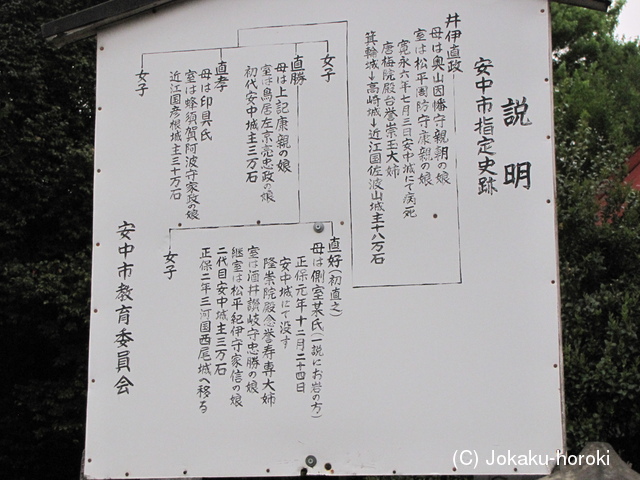 説明
安中市指定史跡
井伊直政
母は奥山因幡守親朝の娘
室は松平周防守康親の娘
寛永六年七月三日安中城にて病死
唐梅院殿台誉崇玉大姉
箕輪城→高崎城→近江国佐波山城主十八万石
女子
直勝
母は上記康親の娘
室は鳥居左京亮忠政の娘
初代安中城主三万石
直孝
母は印具氏
室は蜂須賀阿波守家政の娘
近江国彦根城主三十万石
女子
直好(初直之)
母は側室某氏(一説にお岩の方)
正保元年十二月二十四日
安中城にて没す
隆崇院殿念誉寿専大姉
室は酒井讃岐守忠勝の娘
継室は松平紀伊守家信の娘
二代目安中城主三万石
正保二年三河国西尾城へ移る
女子
安中市教育委員会
(C) Jokaku-horoki